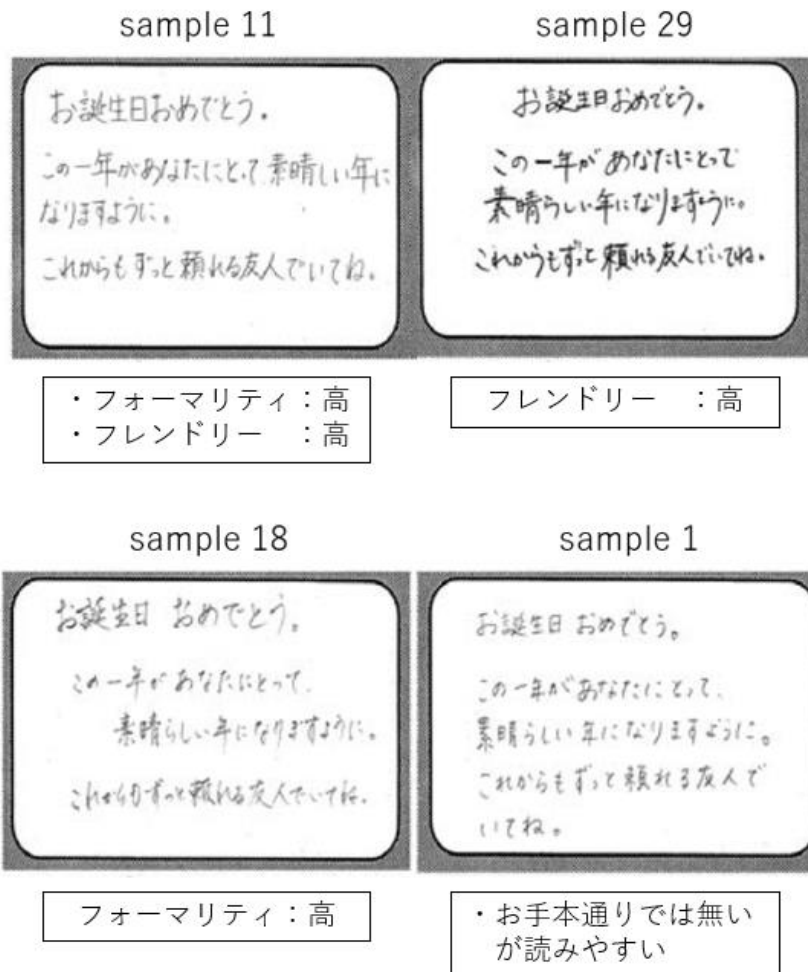 sample 11
お誕生日おめでとう。
この一年があなたにとって素晴しい年に
なりますように。
これからもずっと頼れる友人でいてね。
・フォーマリティ：高
・フレンドリー　：高
sample 29
お誕生日おめでとう。
この一年があなたにとって
素晴らしい年になりますように。
これからもずっと頼れる友人でいてね。
フレンドリー　：高
sample 18
お誕生日 おめでとう。
この一年があなたにとって、
素晴らしい年になりますように。
これからもずっと頼れる友人でいてね。
フォーマリティ：高
sample 1
お誕生日 おめでとう。
この一年があなたにとって、
素晴らしい年になりますように。
これからもずっと頼れる友人で
いてね。
・お手本通りでは無い
が読みやすい